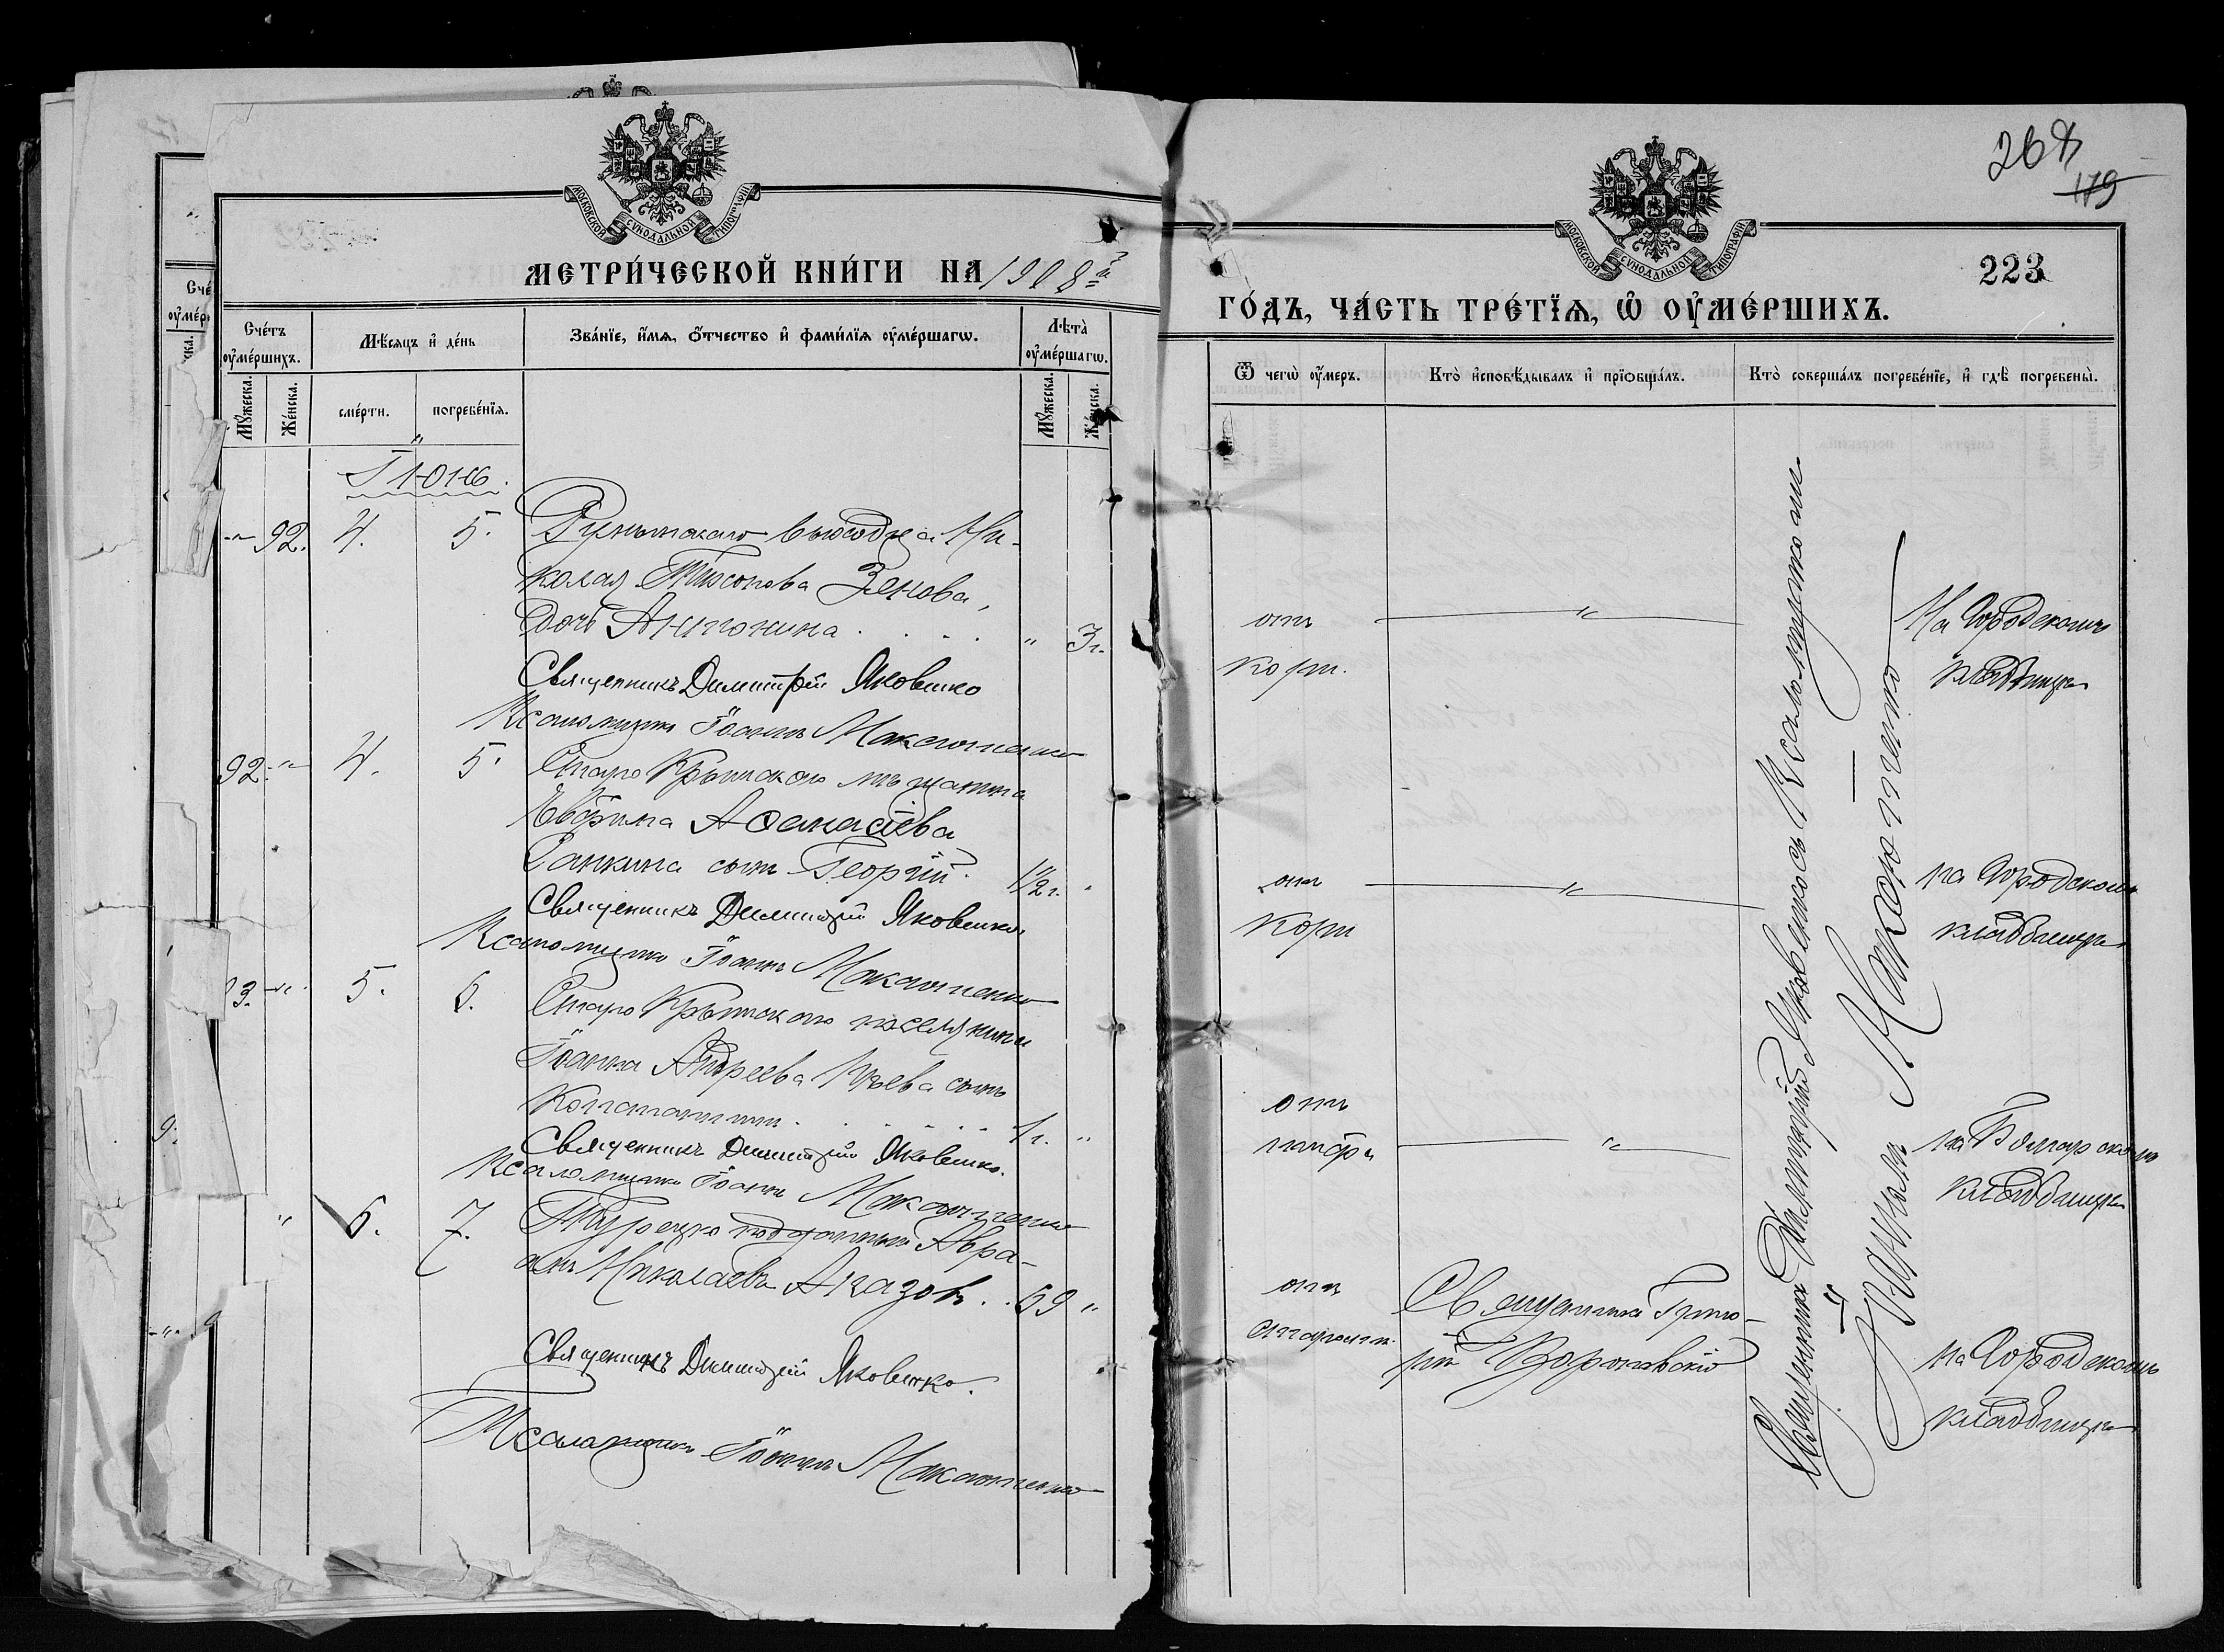 МЕТРИ́ЧЕСКОЙ КНИ́ГИ НА 1908й
Сче́тъ оу҆ме́ршихъ.
Мѣ́сяцъ и҆ де́нь
Зва́нїе, и҆́мѧ, ѻ҆́тчество и҆ фами́лїѧ оу҆ме́ршагѡ.
Лѣ́та̀ оу҆ме́ршагѡ.
Мꙋ́жеска.
Же́нска.
сме́рти.
погребе́нїѧ.
Мꙋ́жеска.
Же́нска.
Іюнь.
-"- 92. 4. 5. Румынскаго выходца Ни-
колая Тихонова Зенова,
дочь Антонина . . . . " 3 г.
Священникъ Димитрій Яковенко
Псаломщикъ Іоаннъ Макаютенко
92. -"- 4. 5. Старо Крымскаго мѣщанина
Евѳима Аѳанасіева
Ганкина сынъ Георгій. 1½ г. "
Священникъ Димитрій Яковенко
Псаломщикъ Іоаннъ Макаютенко
3. -"- 5. 6. Старо Крымскаго поселянина
Іоанна Андреева сынъ
Константинъ . . . . . . 1 г. "
Священникъ Димитрій Яковенко.
Псаломщикъ Іоаннъ Макаютенко
" 6. 7. Турецко подданный Авра-
амъ Николаевъ Аказовъ . . 69 "
Священникъ Димитрій Яковенко.
Псаломщикъ Іоаннъ Макаютенко
268
179
223
МОСКОВСКОЙ СУНОДАЛЬНОЙ ТИПОГРАФІИ
ГО́ДЪ, ЧА́СТЬ ТРЕ́ТЇѦ, Ѡ҆ ОУ҆МЕ́РШИХЪ.
Ѿ чегѡ̀ оу҆́меръ.
Кто̀ и҆сповѣ́дывалъ и҆ прїѻбща́лъ.
Кто̀ соверша́лъ погребе́нїе, и҆ гдѣ̀ погребены̀.
отъ
кори.
"
На Городскомъ
кладбищѣ
отъ
кори
"
на Городскомъ
кладбищѣ
отъ
тифа
"
на Болгарскомъ
кладбищѣ
отъ
старости.
Священникъ Григо-
рій
на Городскомъ
кладбищѣ
Священникъ Димитрій Яковенко съ Псаломщикомъ
Іоанномъ Макаютенко